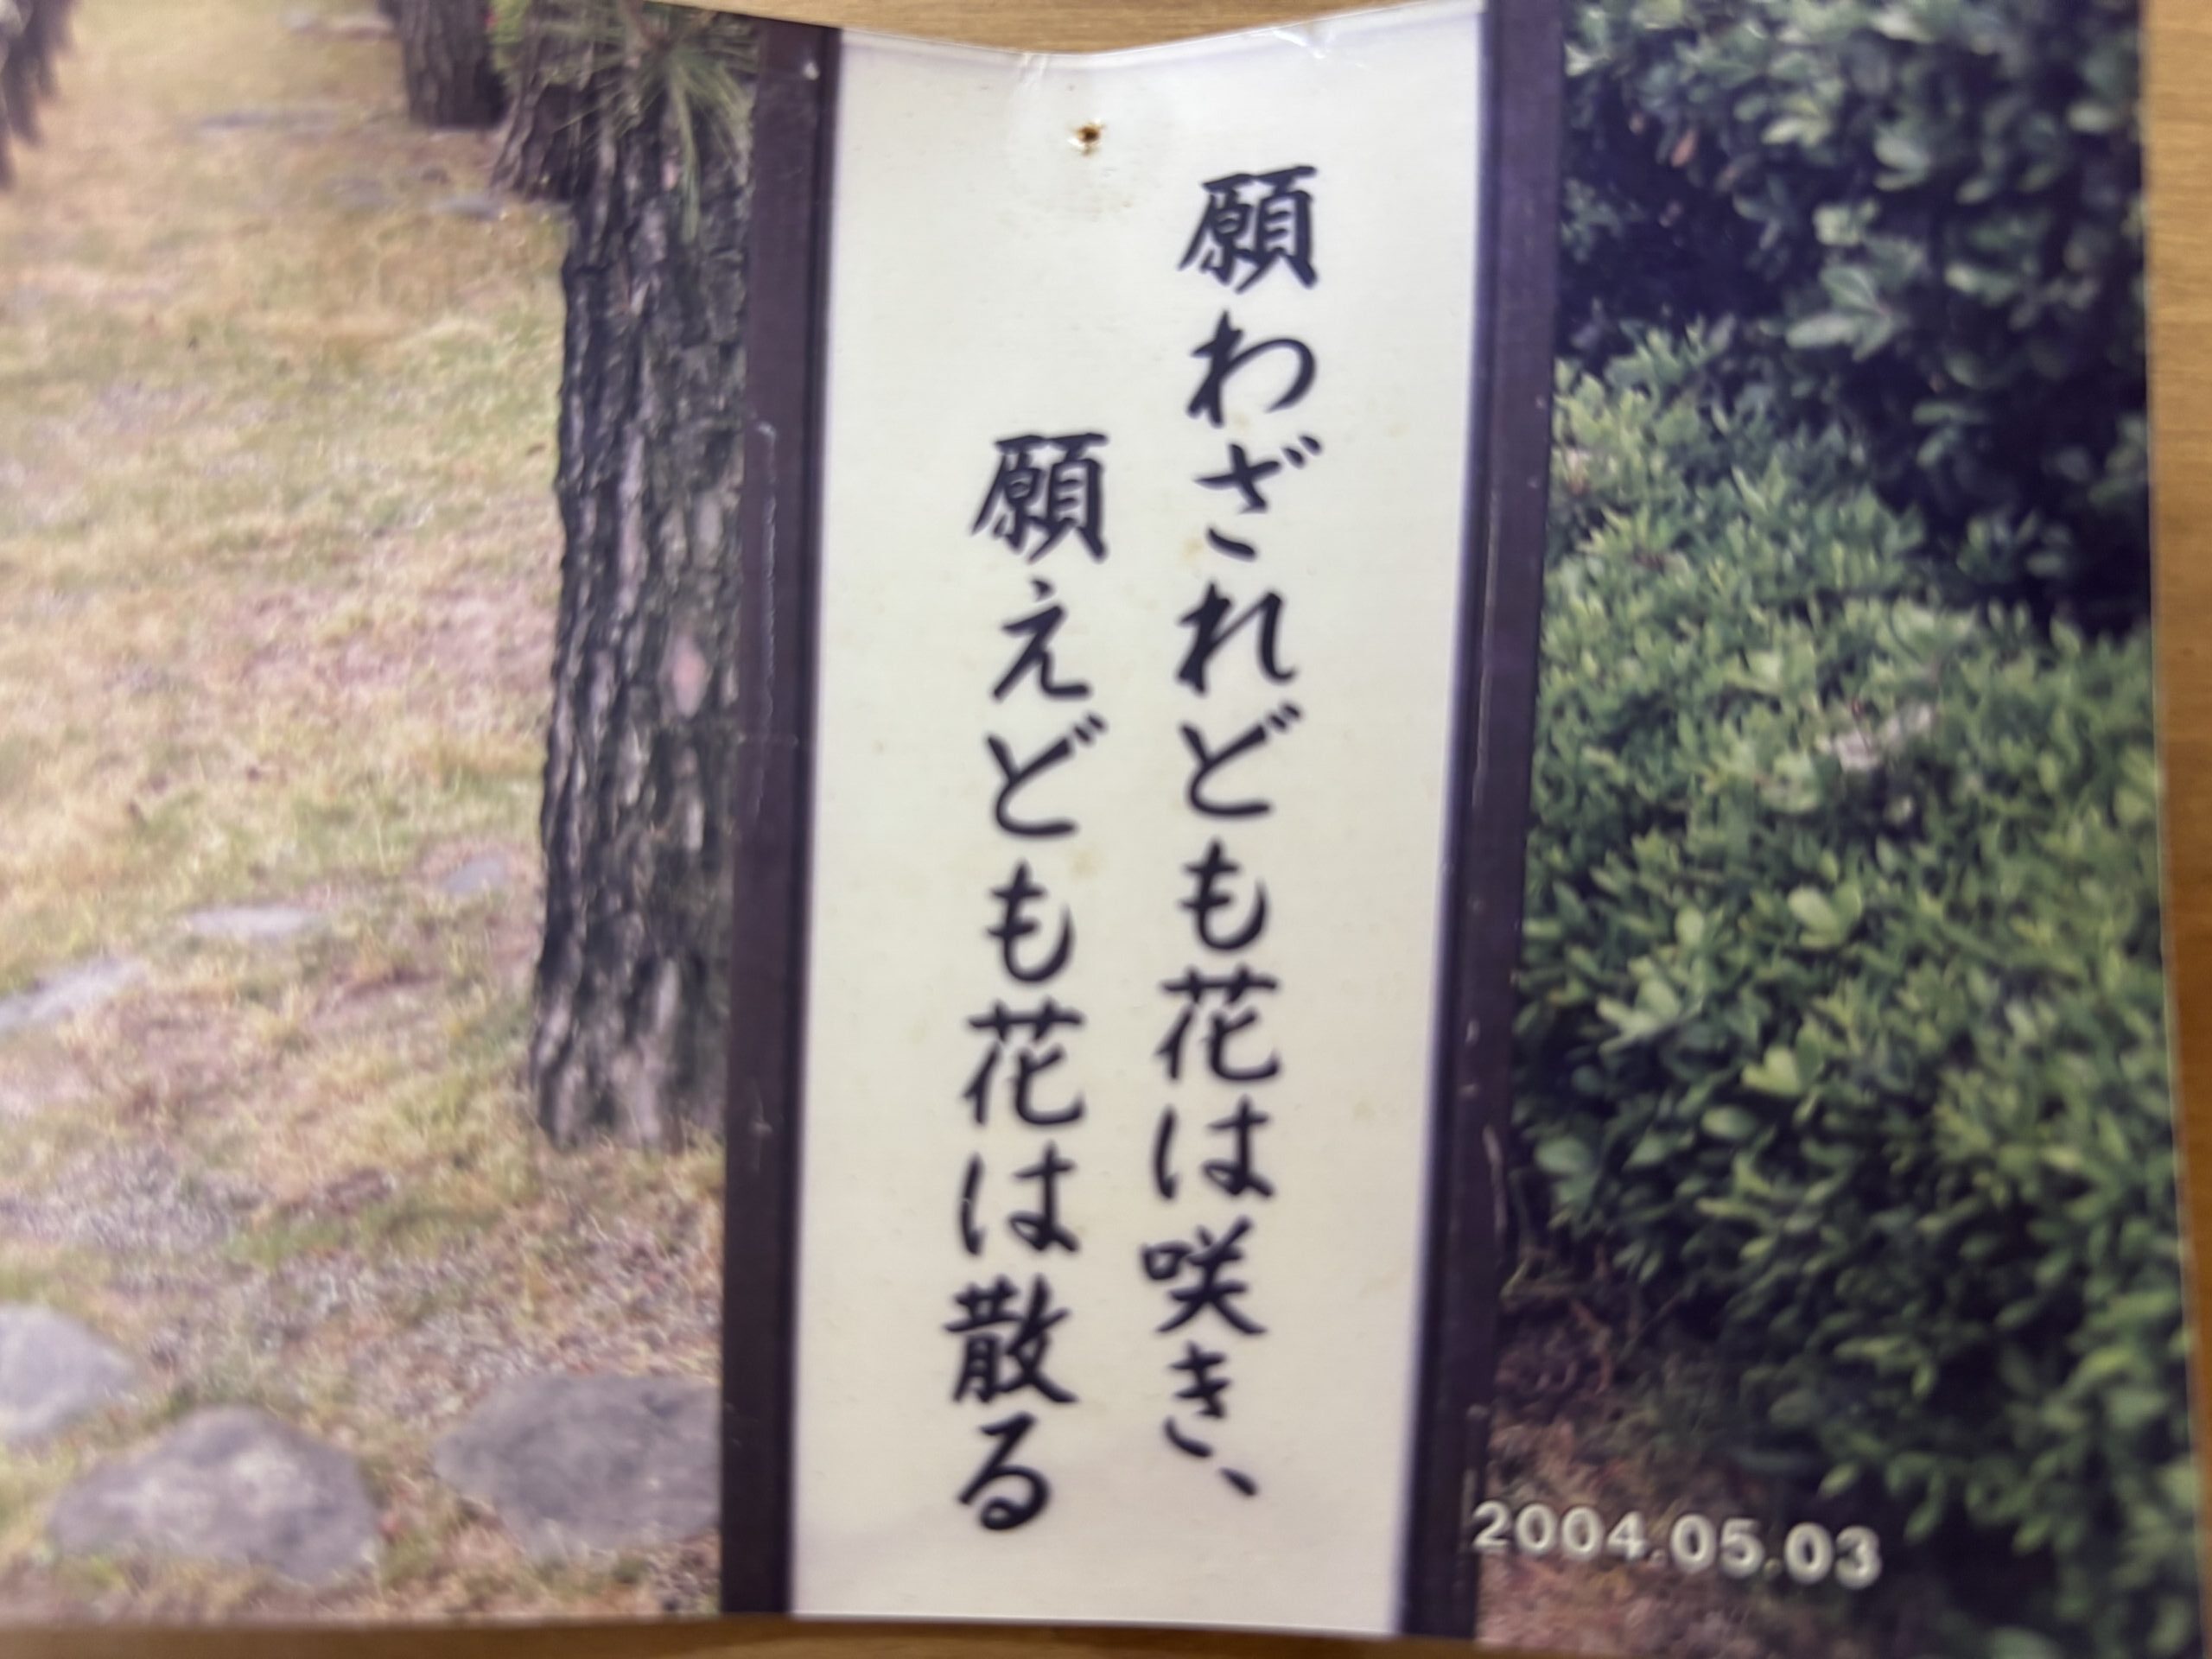 願わざれども花は咲き、
願えども花は散る
2004.05.03